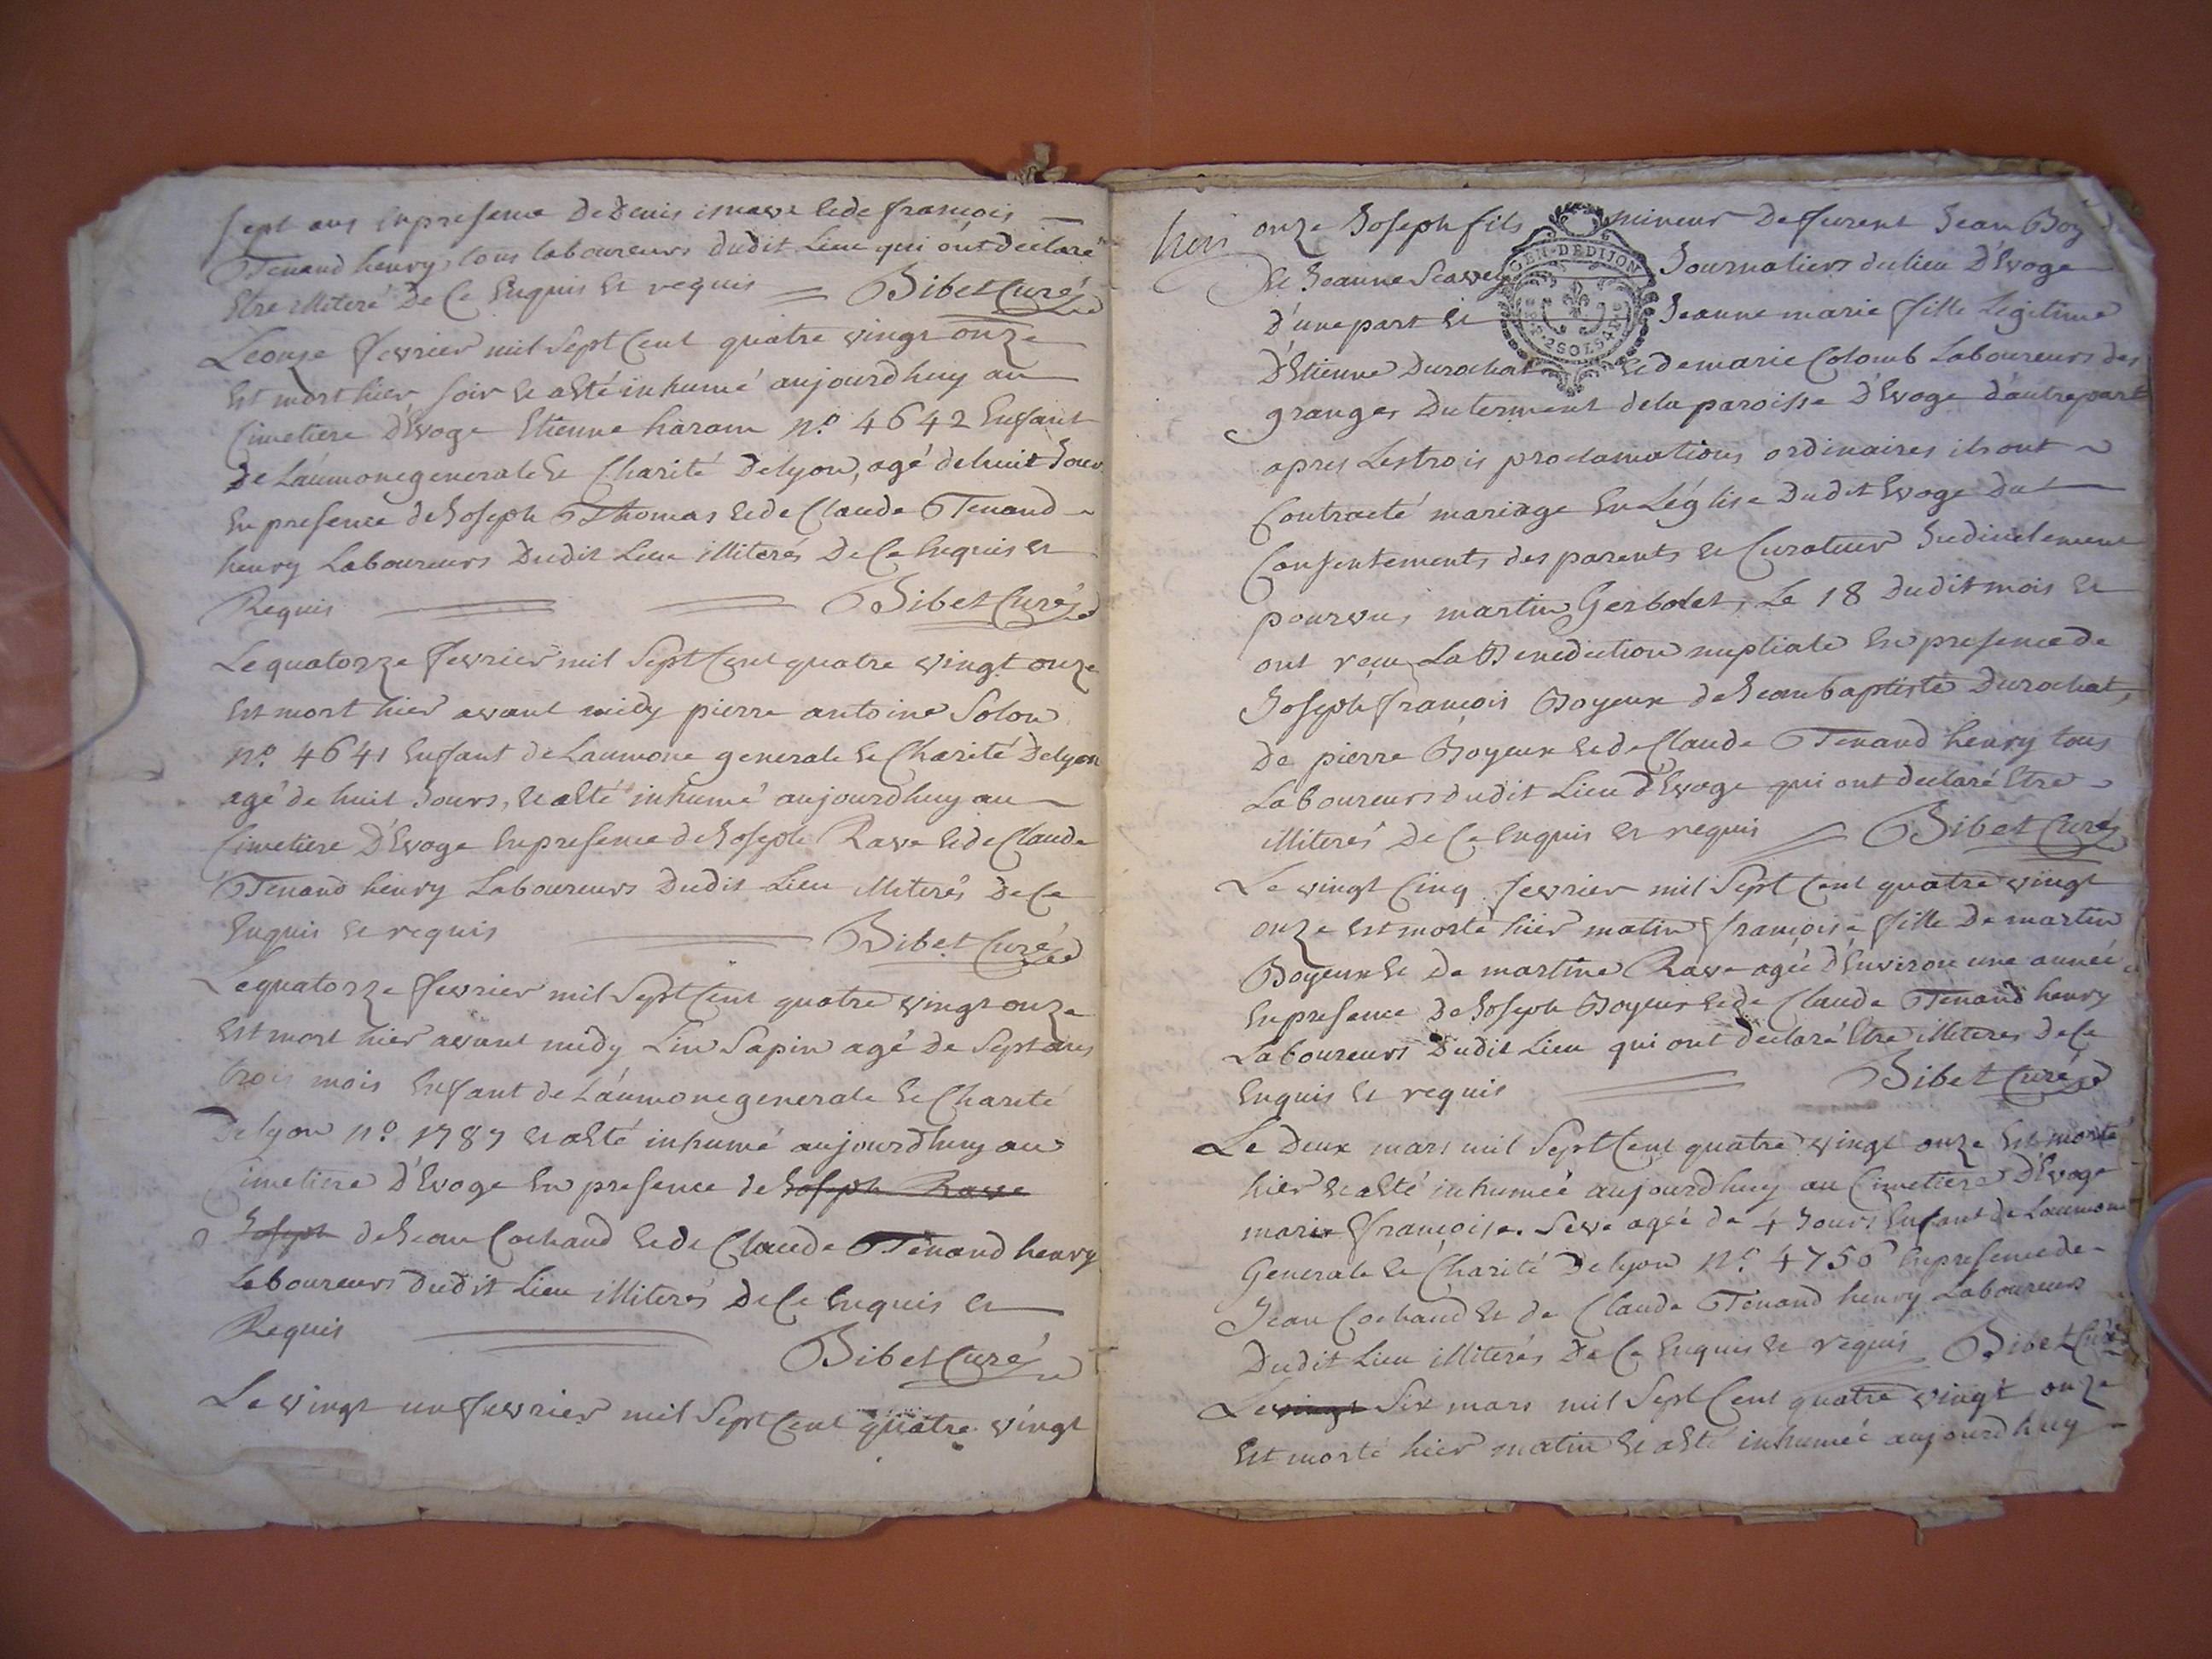 sept ans en presence de Denis ismave & de françois
Tenand henry, tous laboureurs dudit Lieu qui ont declaré
Etre illiteré De Ce Enquis Et requis = Bibet Curé
Le onze fevrier mil Sept Cent quatre vingt onze
Est mort hier soir Et a été inhumé aujourdhuy au
Cimetiere d'Evoge Etienne haram N.o 4642 Enfant
De Laumone generale Et Charité De lyon, agé de huit Jour
En presence de Joseph Thomas & de Claude Tenand
henry Laboureurs Dudit Lieu illiterés De Ce Enquis Et
Requis Bibet Curé
Le quatorze fevrier mil Sept Cent quatre vingt onze
Est mort hier avant midy pierre antoine Solon
N.o 4641 Enfant de Laumone generale Et Charité De lyon
agé de huit Jours, Et a été inhumé aujourdhuy au
Cimetiere D'Evoge En presence de Joseph Rave & de Claude
Tenand henry Laboureurs Dudit Lieu illiterés De Ce
Enquis Et requis Bibet Curé
Le quatorze fevrier mil Sept Cent quatre vingt onze
Est mort hier avant midy Lin Sapin agé De Sept ans
trois mois Enfant de Laumone generale Et Charité
De lyon N.o 1787 Et a été inhumé aujourdhuy au
Cimetiere d'Evoge En presence de Joseph Rave
Joseph de Jean Cochand & de Claude Tenand henry
Laboureurs Dudit Lieu illiterés De Ce Enquis Et
Requis
Bibet Curé
Le vingt un fevrier mil Sept Cent quatre vingt
onze Joseph fils mineur De furent Jean Boy
GEN·DEDIJON
& Jeanne Journaliers du lieu D'Evoge
d'une part Et Jeanne marie fille Legitime
2SOLS
D'Etienne Durochat & de marie Colomb Laboureurs des
granges Du terment de la paroisse D'Evoge d'autre part
apres Les trois proclamations ordinaires ils ont
Contracté mariage En L'église Dudit Evoge Du
Consentements des parents & Curateur Judiciclement
pourvus martin Gerbolet, Le 18 Dudit mois Et
ont reçu La Benediction nuptiale En presence de
Joseph françois Boyeux de Jean baptiste Durochat,
De pierre Boyeux & de Claude Tenand henry tous
Laboureurs dudit Lieu d'Evoge qui ont declaré Etre
illiterés De Ce Enquis Et requis Bibet Curé
Le vingt Cinq fevrier mil Sept Cent quatre vingt
onze Est morte hier matin françoise fille De martin
Boyeux Et De martine Rave agée d'Environ une année
En presence De Joseph Boyeux & de Claude Tenand henry
Laboureurs Dudit Lieu qui ont declaré Etre illiteres De Ce
Enquis Et requis Bibet Curé
Le Deux mars mil Sept Cent quatre vingt onze Est morte
hier Et a été inhumée aujourdhuy au Cimetiere D'Evoge
marie françoise Seve agée de 4 Jours Enfant de Laumone
Generale Et Charité De lyon N.o 4750 En presence de
Jean Cochand Et de Claude Tenand henry Laboureurs
Dudit Lieu illiterés De Ce Enquis Et requis Bibet Curé
Le vingt Six mars mil Sept Cent quatre vingt onze
Est morte hier matin Et a été inhumée aujourdhuy